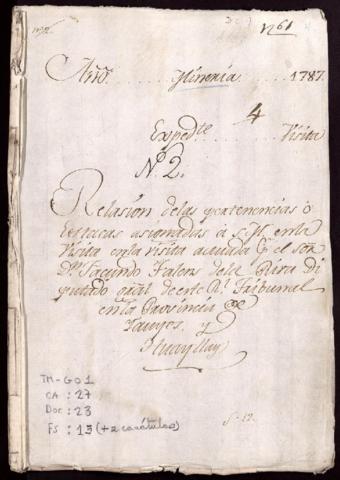 1761
Año . . . . . Minería . . . . 1787.
4
Expedte . . . . Visita
No 2.
Relasión delas pertenencias ó
Estacas asignadas á S. M. en la
Visita en la visita actuada pr el Sor
Dn Jacinto de la Riva Di
putado gral de este Rl Tribunal
en la Provincia de
Yauyos, y
Huayllay
TM-GO1
CA : 27
Doc : 23
Fs : 13 (+2 carátulas)
f- 12.